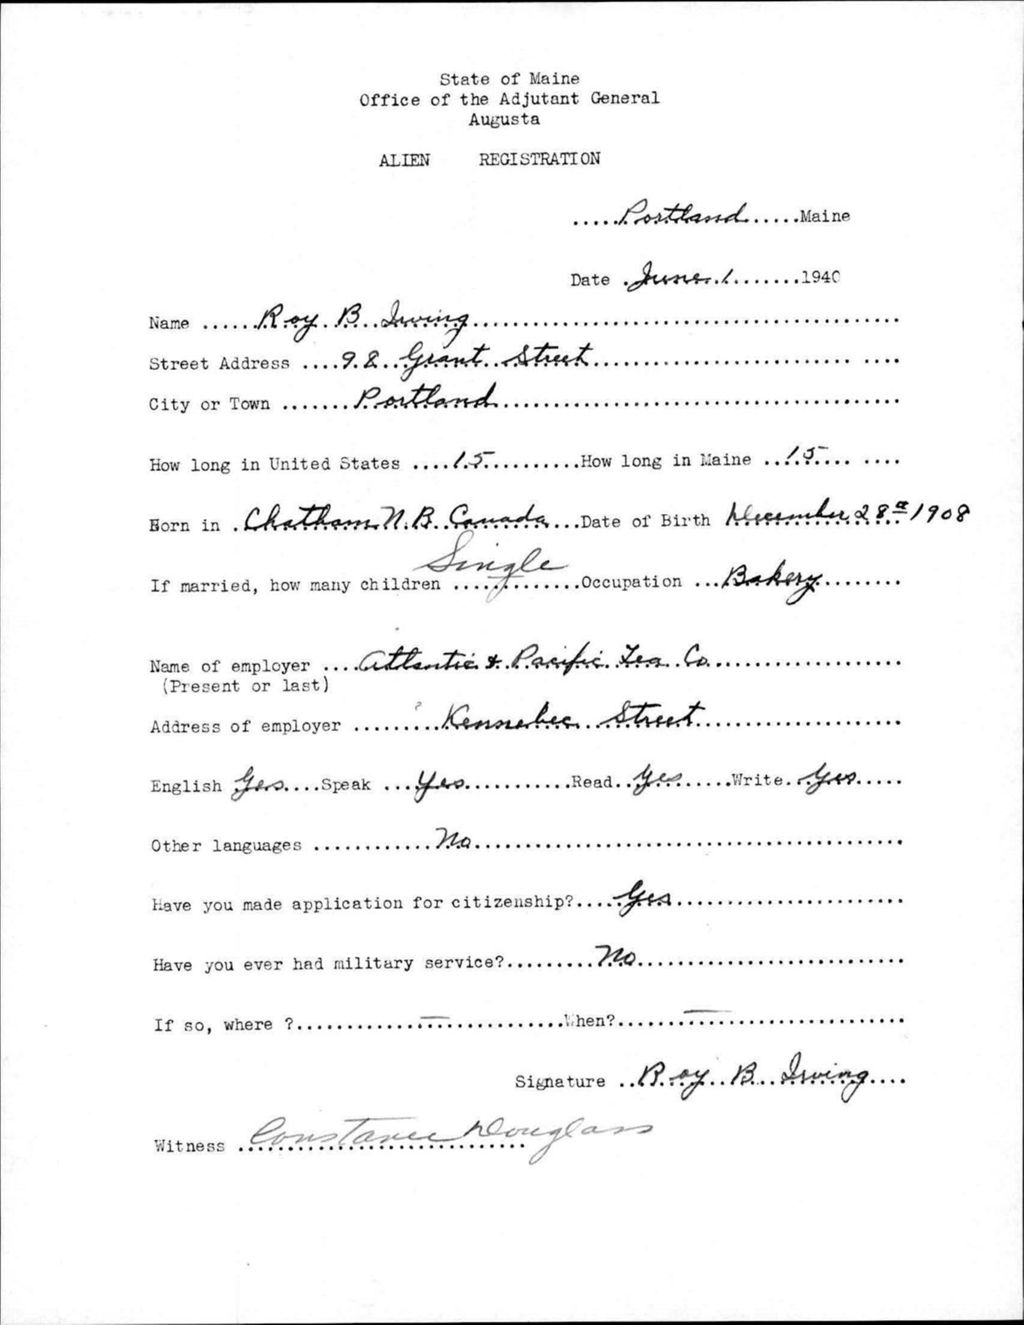 State of Maine
Office of the Adjutant General
Augusta
ALIEN REGISTRATION
.....Portland.....Maine
Date .June.1........1940
Name ......Roy B. Irving............................................
Street Address ....98 Grant Street............................ ....
City or Town .......Portland............................................
How long in United States ....15..........How long in Maine ...15.... ....
Born in .Chatham N.B. Canada...Date of Birth December 28th 1908
If married, how many children ....Single........Occupation ...Bakery........
Name of employer ....Atlantic & Pacific Tea Co...................
(Present or last)
Address of employer .........Kennebec Street.....................
English Yes....Speak ...Yes...........Read..Yes......Write..Yes.....
Other languages ............No...........................................
Have you made application for citizenship?.....Yes.......................
Have you ever had military service?.........No...........................
If so, where ?............—............When?......—....................
Signature ..Roy B. Irving....
Witness Constance Douglass